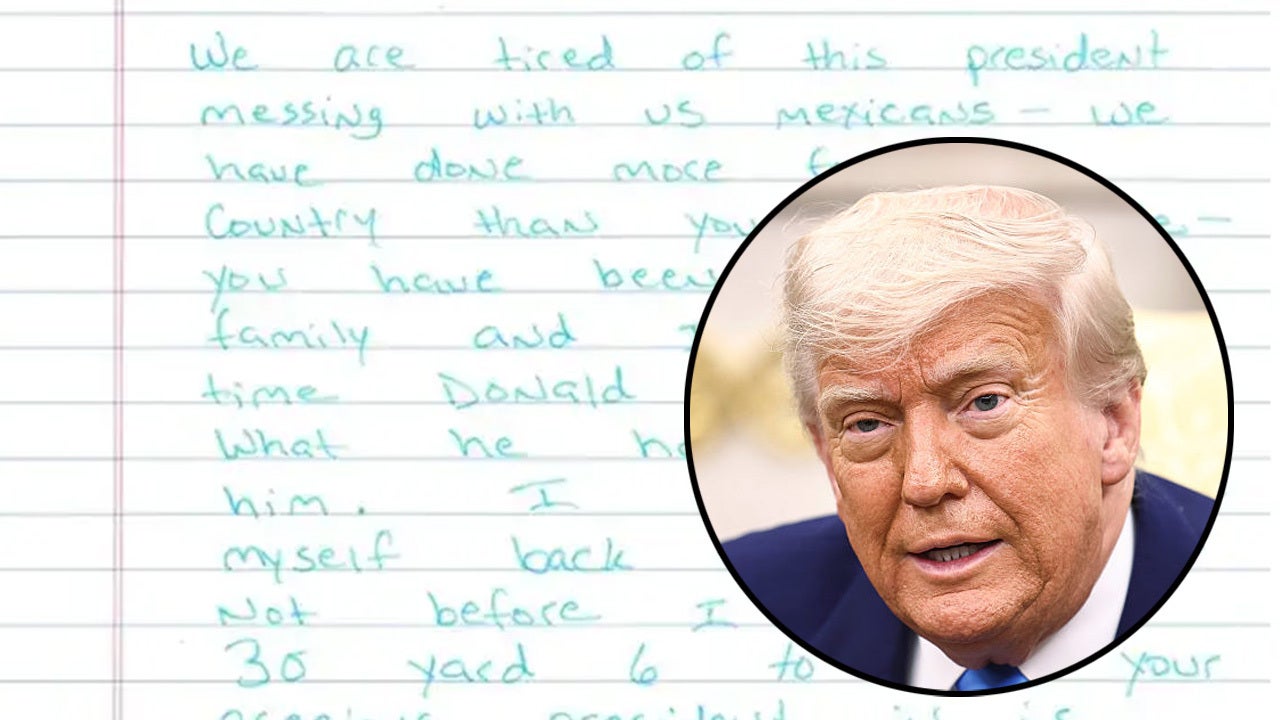 We are tired of this president
messing with us mexicans - we
have done more
Country than
you have been
family and
time Donald
What he
him. I
myself back
Not before I
30 yard 6 to your